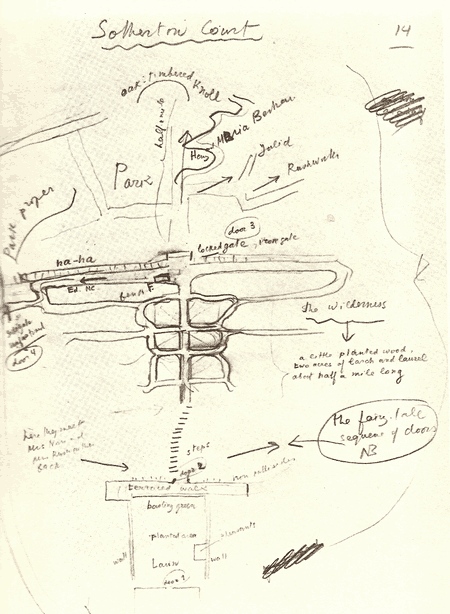 Sotherton Court
14
oak-timbered Knoll
half mile
Maria Bertram
Heny
Julia
Rushworth
Park
Park proper
door 3
locked gate, iron gate
ha-ha
Ed. MC.
bench F.
the wilderness
a little planted wood,
two acres of larch and laurel
about half a mile long
door 4
the fairy-tale
sequence of doors
NB
here they meet
Mrs Norris and
Mrs Rushworth
BACK
steps
door 2
iron palisades
terraced walk
bowling green
planted area
pheasants
wall
wall
Lawn
door 1